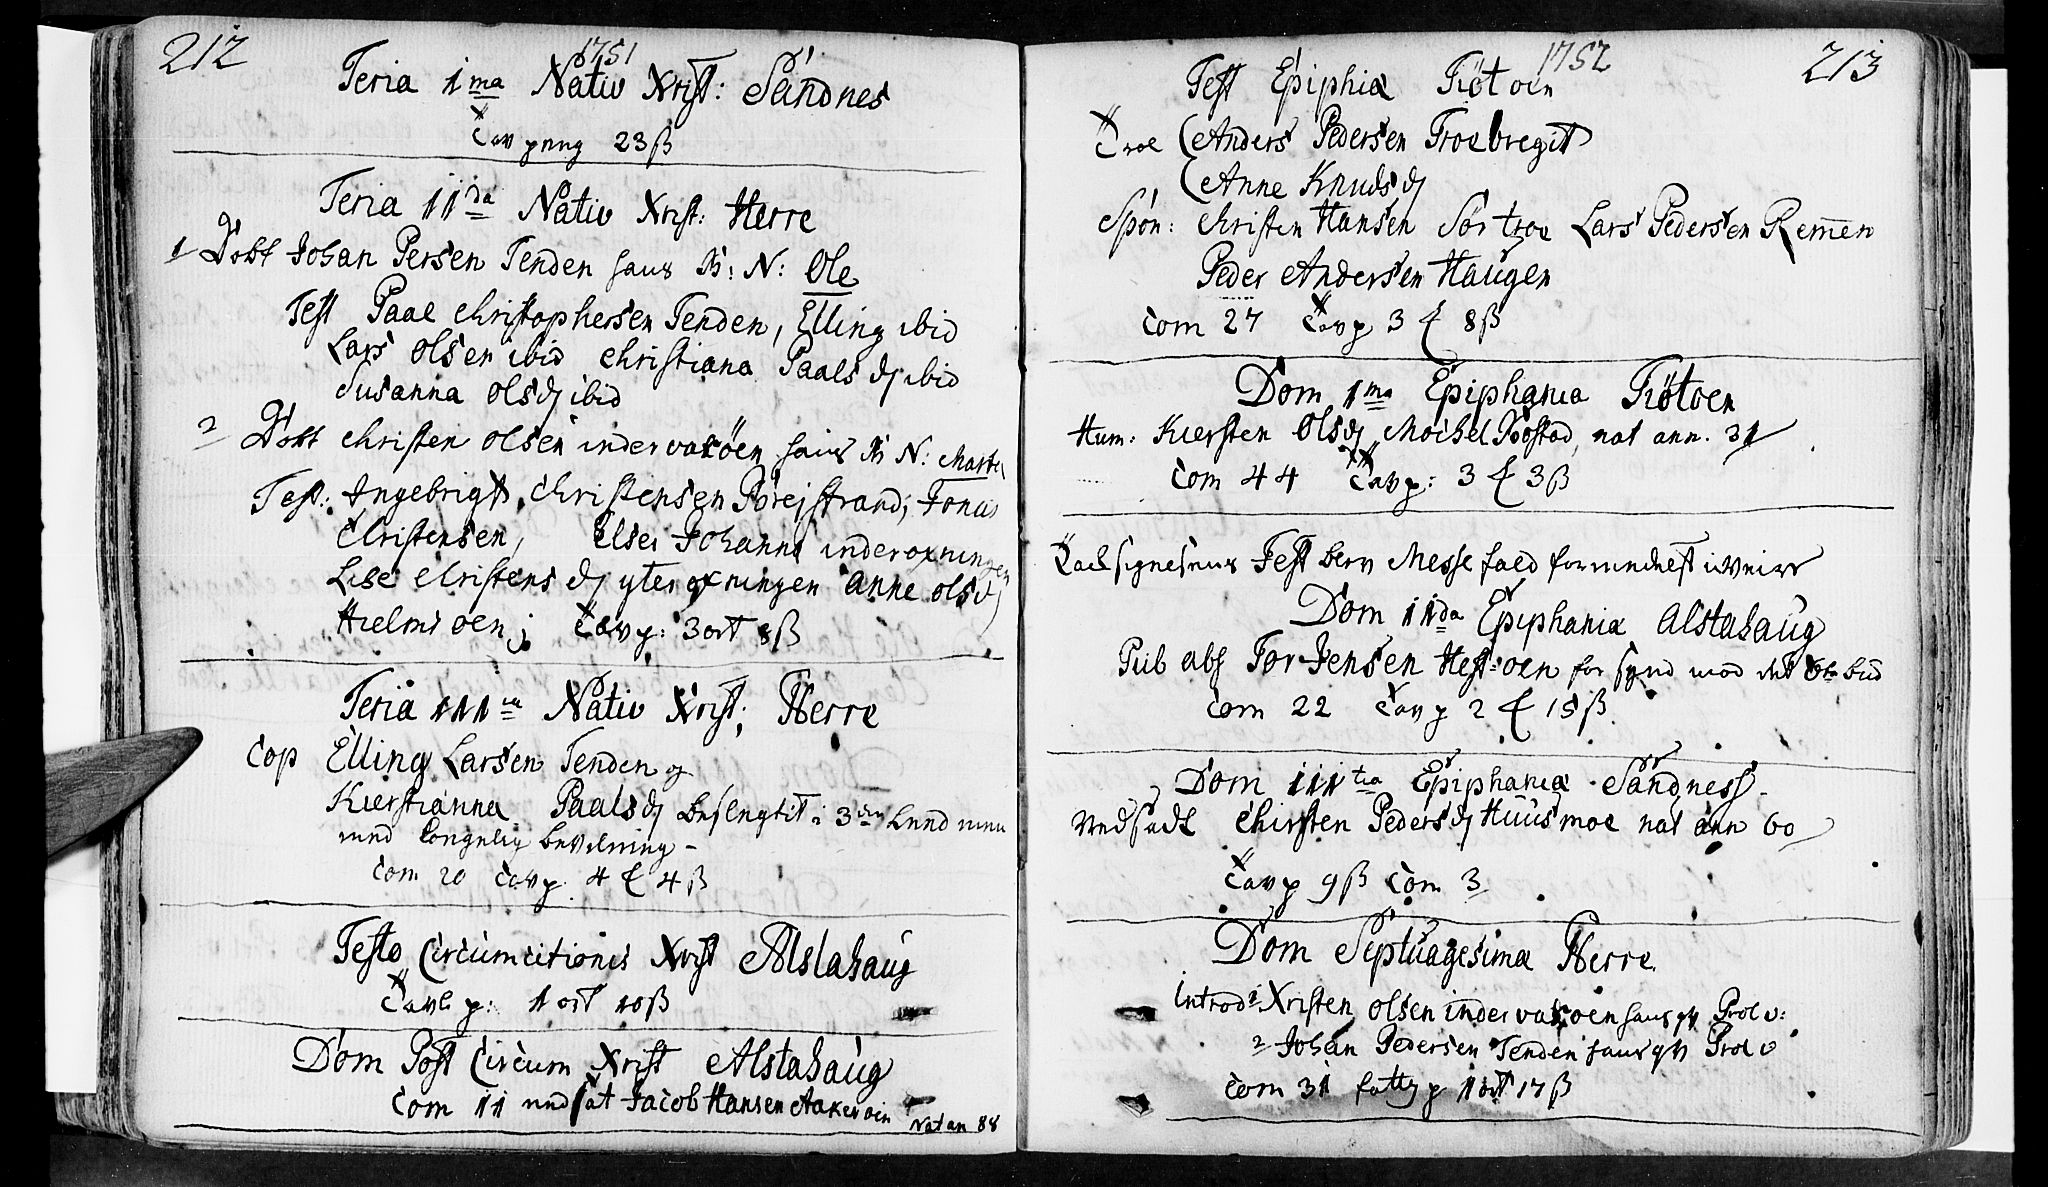 212
1751
Feria 1ma Nativ Xrist: Sandnes
Tavp 23ß
Feria 11da Nativ Xrist: Herre
1 Døbt Johan Persen Tenden hans B: N: Ole
Test Paal Christophersen Tenden, Elling ibid
Lars Olsen ibid Christiana Paals dj ibid
Susanna Olsdj ibid
2 Døbt Christen Olsen inder hans B N:
Test: Ingebrigt Christensen strand, Jonas
Christensen, Else Johanns inderoxningen
Lise Christens dj yteroxningen Anne Olsdj
Hielmsoen; Tavp: 3 ort 8ß
Feria 111a Nativ Xrist: Herre
Cop Elling Larsen Tenden og
Kierstianna Paalsdj beslegtit i 3die
med kongelig bevilning -
Com 20 Tavp 4 £ 4ß
Festo Circumcitionis Xrist Alstahaug
Tavl p: 1 ort 10ß
Dom Post Circum Xrist Alstahaug
Com 11 nedsat Jacob Hansen Natan 88
1752
213
Fest Epiphiæ Tiøtoen
Troe (Anders Pedersen
(Anne Knudsdj
Spon: Christen Hansen Sør troe Lars Pedersen Remen
Peder Andersen Haugen
Com 27 Tavp 3 £ 8ß
Dom 1ma Epiphania Tiøtoen
Hum: Kiersten Olsdj nat ann. 31
Com 44 Tavp: 3 £ 3ß
Fest blev Messe fald formedelst uveirr
Dom 11da Epiphania Alstahaug
Pub abs For Jensen Hest=oen for synd mod det 6te bud
Com 22 Tavp 2 £ 15ß
Dom 111tia Epiphania Sandness
Nedsadt Chirsten Pedersdj Huusmoe nat ann 60
Tavp 9ß Com 3
Dom Septuagesima Herre
Introd: 1 Xristen Olsen inder hans qv Prol v:
2 Johan Pedersen Tenden hans qv Prol v
Com 31 fattig p 1 ort 17ß